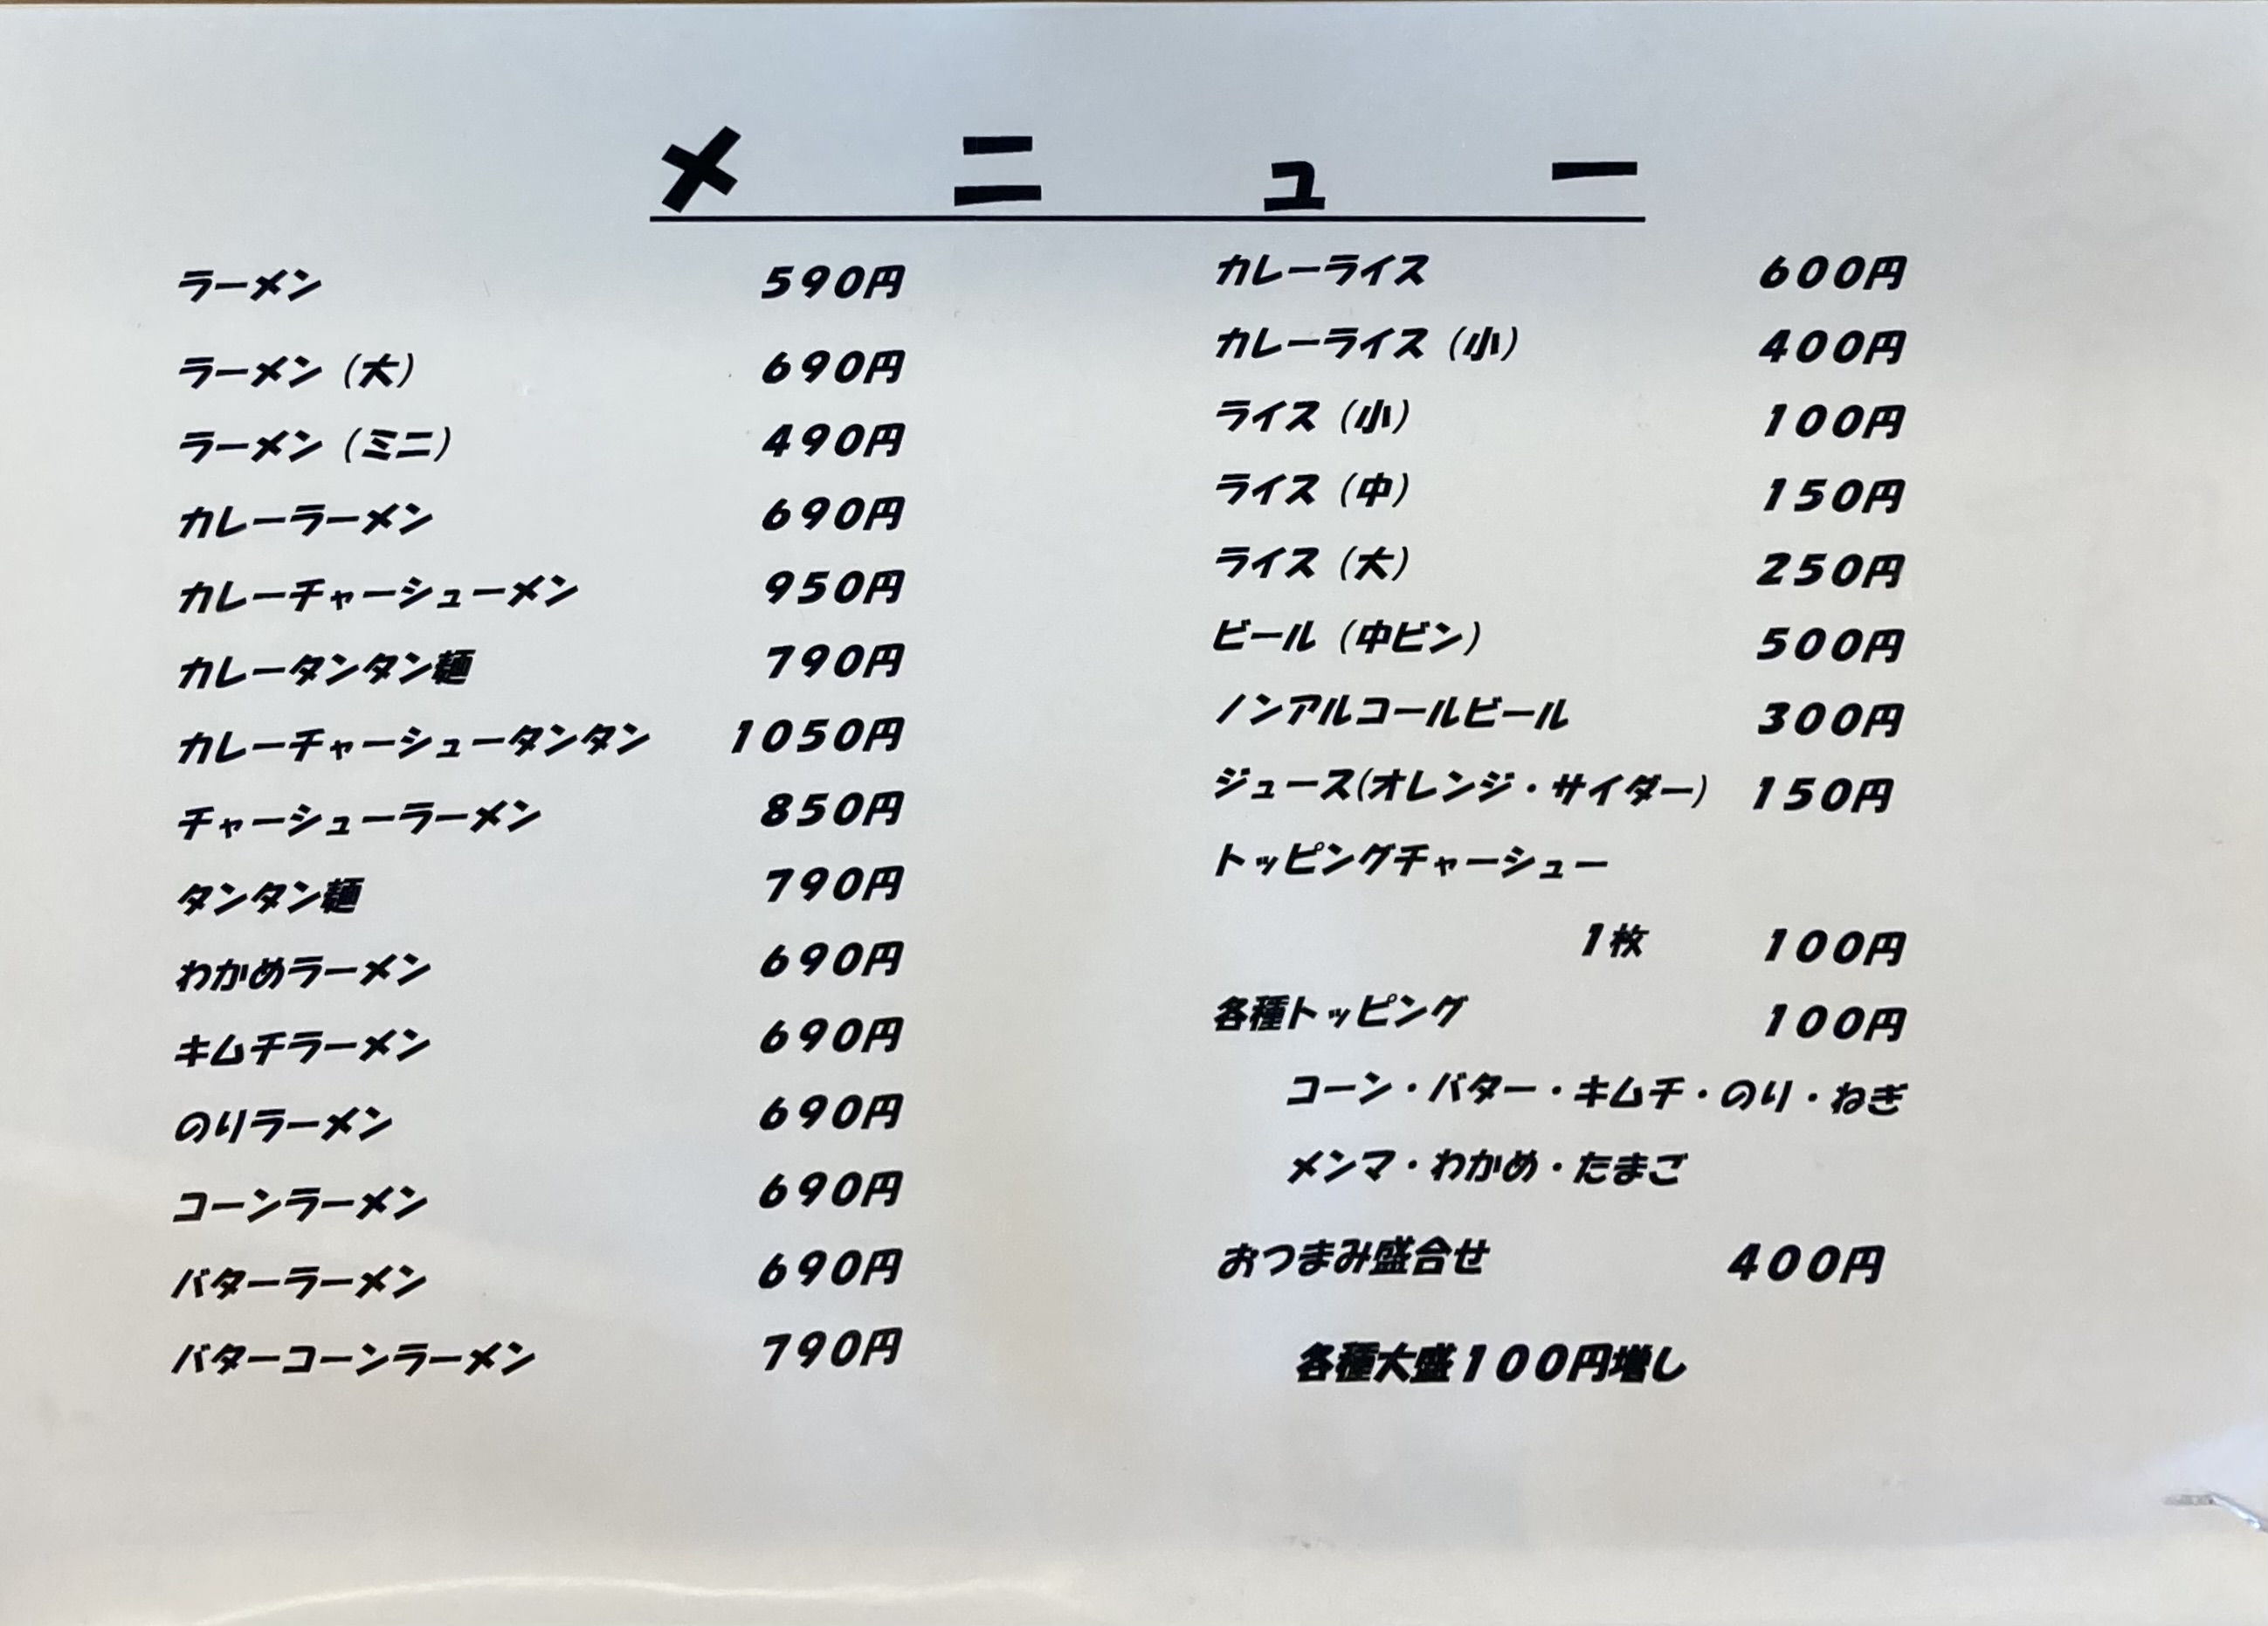 メニュー
ラーメン 590円
ラーメン（大） 690円
ラーメン（ミニ） 490円
カレーラーメン 690円
カレーチャーシューメン 950円
カレータンタン麺 790円
カレーチャーシュータンタン 1050円
チャーシューラーメン 850円
タンタン麺 790円
わかめラーメン 690円
キムチラーメン 690円
のりラーメン 690円
コーンラーメン 690円
バターラーメン 690円
バターコーンラーメン 790円
カレーライス 600円
カレーライス（小） 400円
ライス（小） 100円
ライス（中） 150円
ライス（大） 250円
ビール（中ビン） 500円
ノンアルコールビール 300円
ジュース(オレンジ・サイダー) 150円
トッピングチャーシュー
1枚 100円
各種トッピング 100円
コーン・バター・キムチ・のり・ねぎ
メンマ・わかめ・たまご
おつまみ盛合せ 400円
各種大盛100円増し